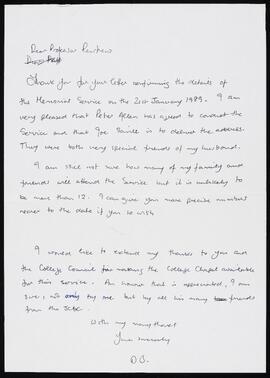 Dear Professor Renfrew
Thank you for your letter confirming the details of
the Memorial Service on the 21st January 1989. I am
very pleased that Peter Allen has agreed to conduct the
Service and that Joe Saville is to deliver the address.
They were both very special friends of my husband.
I am still not sure how many of my family and
friends will attend the Service but it is unlikely to
be more than 12. I can give you more precise numbers
nearer to the date if you so wish.
I would like to extend my thanks to you and
the College Council for making the College Chapel available
for this service. An honour that is appreciated, I am
sure, not only by me but by all his many friends
from the
With my many thanks
Yours sincerely